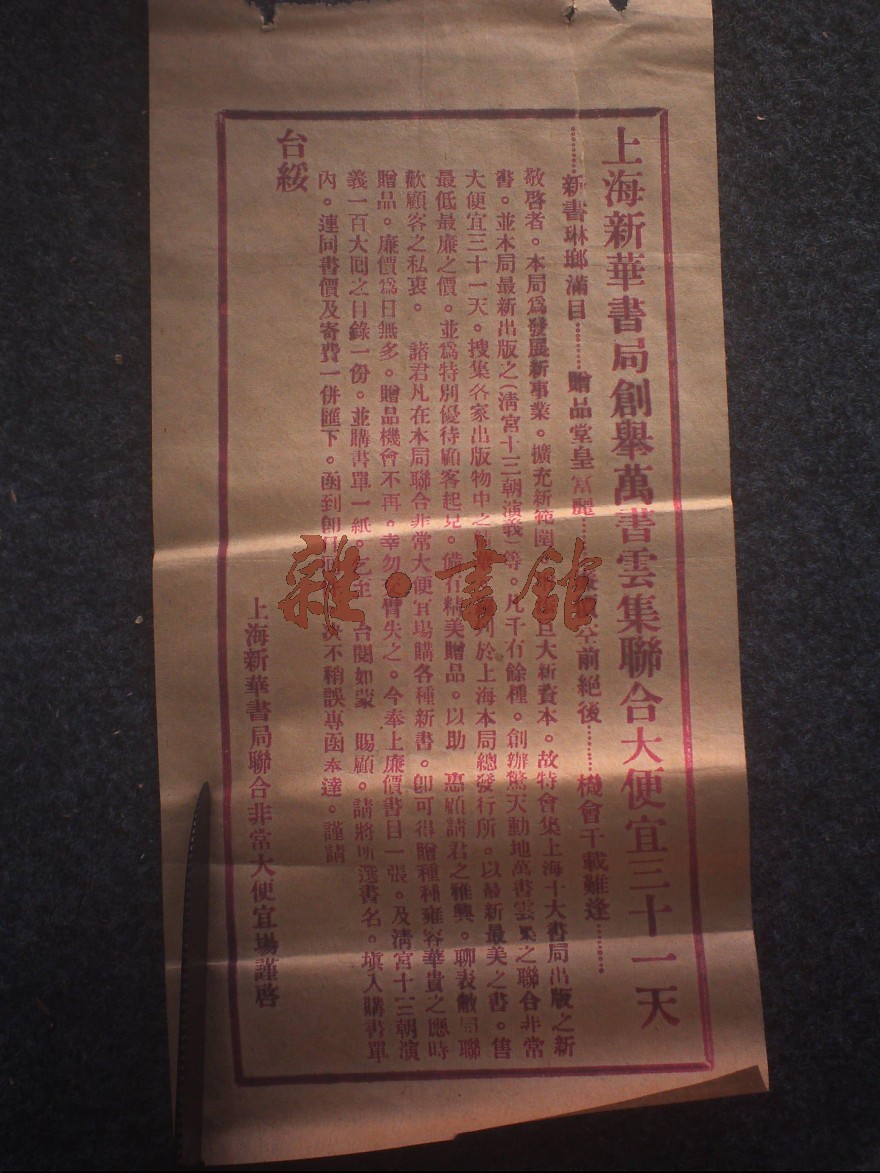 上海新華書局創舉萬書雲集聯合大便宜三十一天
………新書琳瑯滿目………贈品堂皇富麗………空前絕後………機會千載難逢………
敬啓者。本局爲發展新事業。擴充新範圍 巨大新資本。故特會集上海十大書局出版之新
書。並本局最新出版之(清宮十三朝演義)等。凡千有餘種。創辦驚天動地萬書雲集之聯合非常
大便宜三十一天。搜集各家出版物中之 列於上海本局總發行所。以最新最美之書。售
最低最廉之價。並爲特別優待顧客起見。備有精美贈品。以助 惠顧諸君之雅興。聊表敝局聯
歡顧客之私衷。 諸君凡在本局聯合非常大便宜場購各種新書。卽可得贈種種雍容華貴之應時
贈品。廉價爲日無多。贈品機會不再。幸勿 臂失之。今奉上廉價書目一張。及清宮十三朝演
義一百大囘之目錄一份。並購書單一紙。乞至 台閱如蒙 賜顧。請將所選書名。塡入購書單
內。連同書價及寄費一併匯下。函到卽日 決不稍誤專函奉達。謹請
台綏
上海新華書局聯合非常大便宜場謹啓
雜·書館